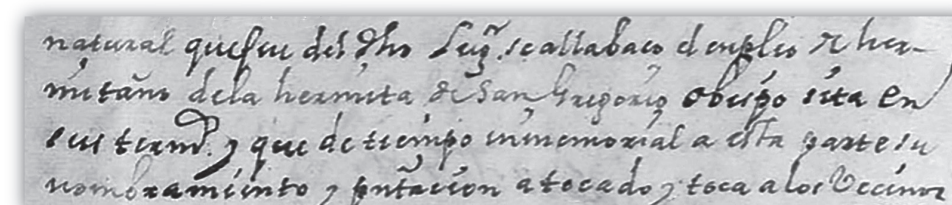 natural que fue del dho Lugr. se allaba co el enpleo de her-
mitaño de la hermita de San Gregorio obispo sita en
sus termos. y que de tiempo inmemorial a esta parte su
nombramiento y pntacion a tocado y toca a los Vecinos